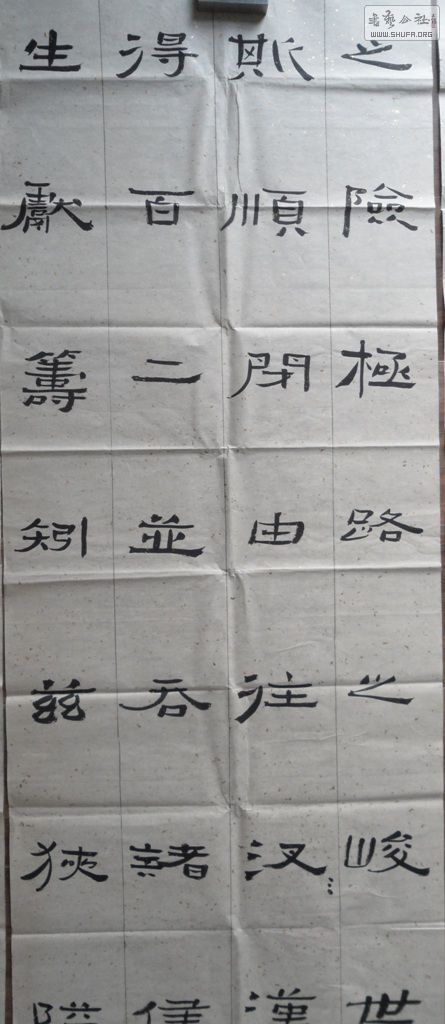 書藝公社
WWW.SHUFA.ORG
之險極路之峻世
斯順閉由往汊漢
得百二並吞諸侯
生獻籌矧茲狹隘